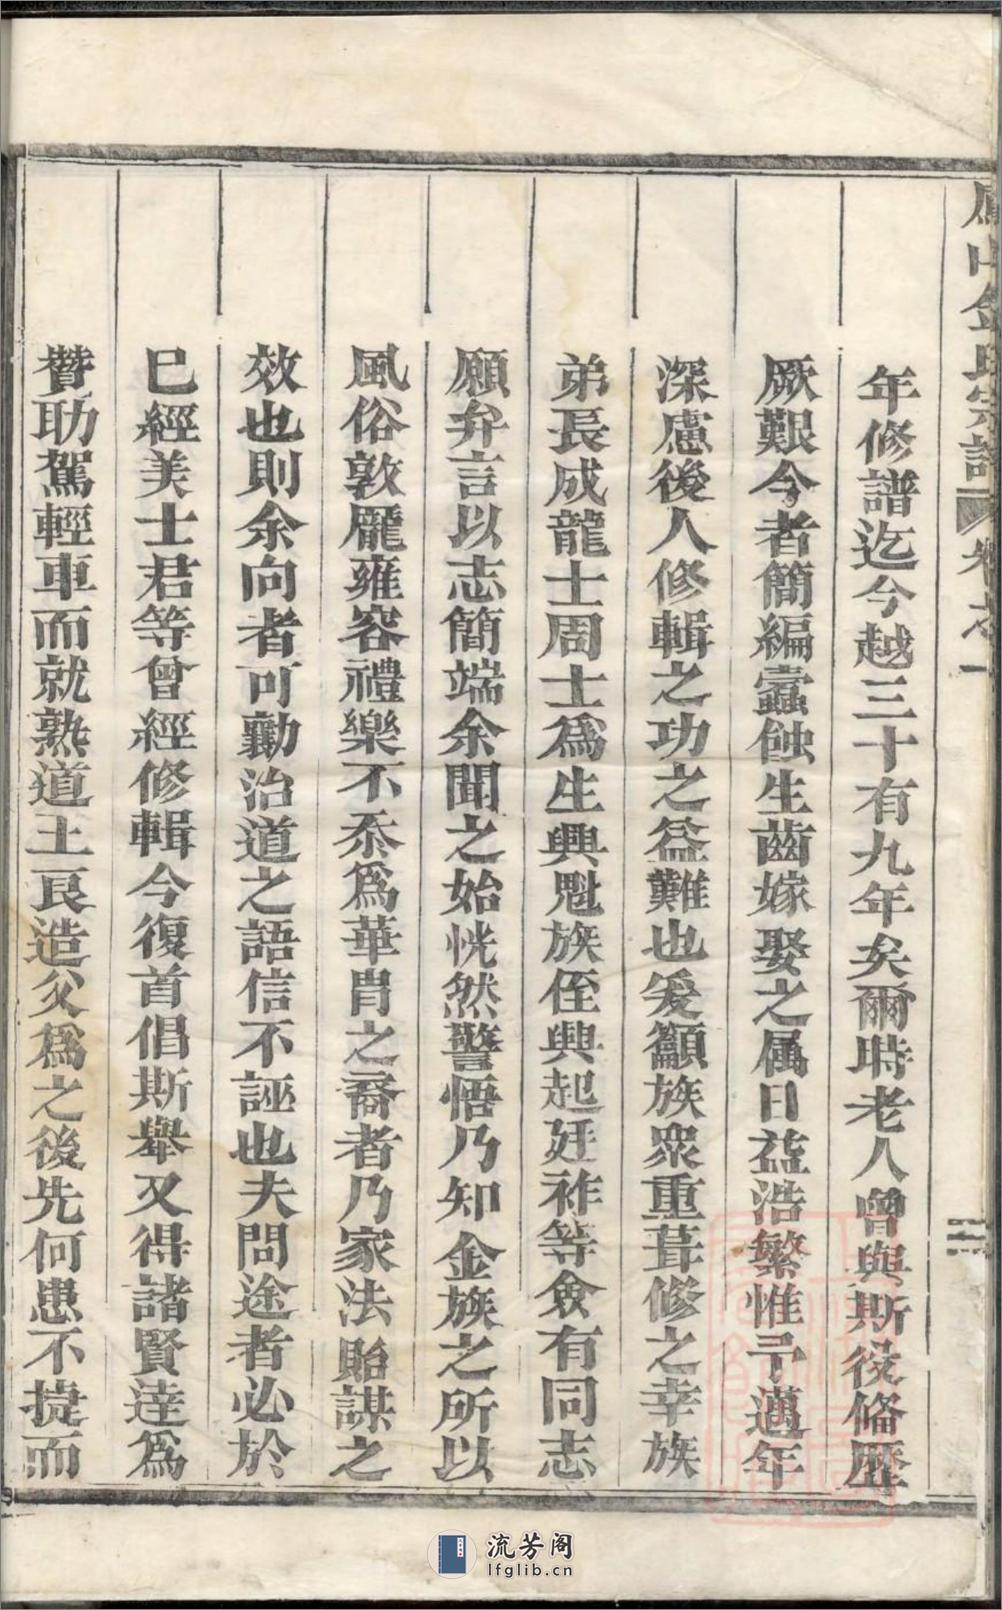 金氏宗譜 卷之一
年修譜迄今越三十有九年矣爾時老人曾與斯役俻歷
厥艱今者簡編蠧蝕生齒嫁娶之属日益浩繁惟予邁年
深慮後人修輯之功之益難也爰籲族眾重葺修之幸族
弟長成龍士周士為生興魁族侄興起廷祚等僉有同志
願弁言以志簡端余聞之始恍然警悟乃知金族之所以
風俗敦龐雍容禮樂不忝為華胄之裔者乃家法貽謀之
效也則余向者可勷治道之語信不誣也夫問途者必於
已經美士君等曾經修輯今復首倡斯舉又得諸賢逹為
贊助駕輕車而就熟道王良造父為之後先何患不捷而
流芳阁
lfglib.cn